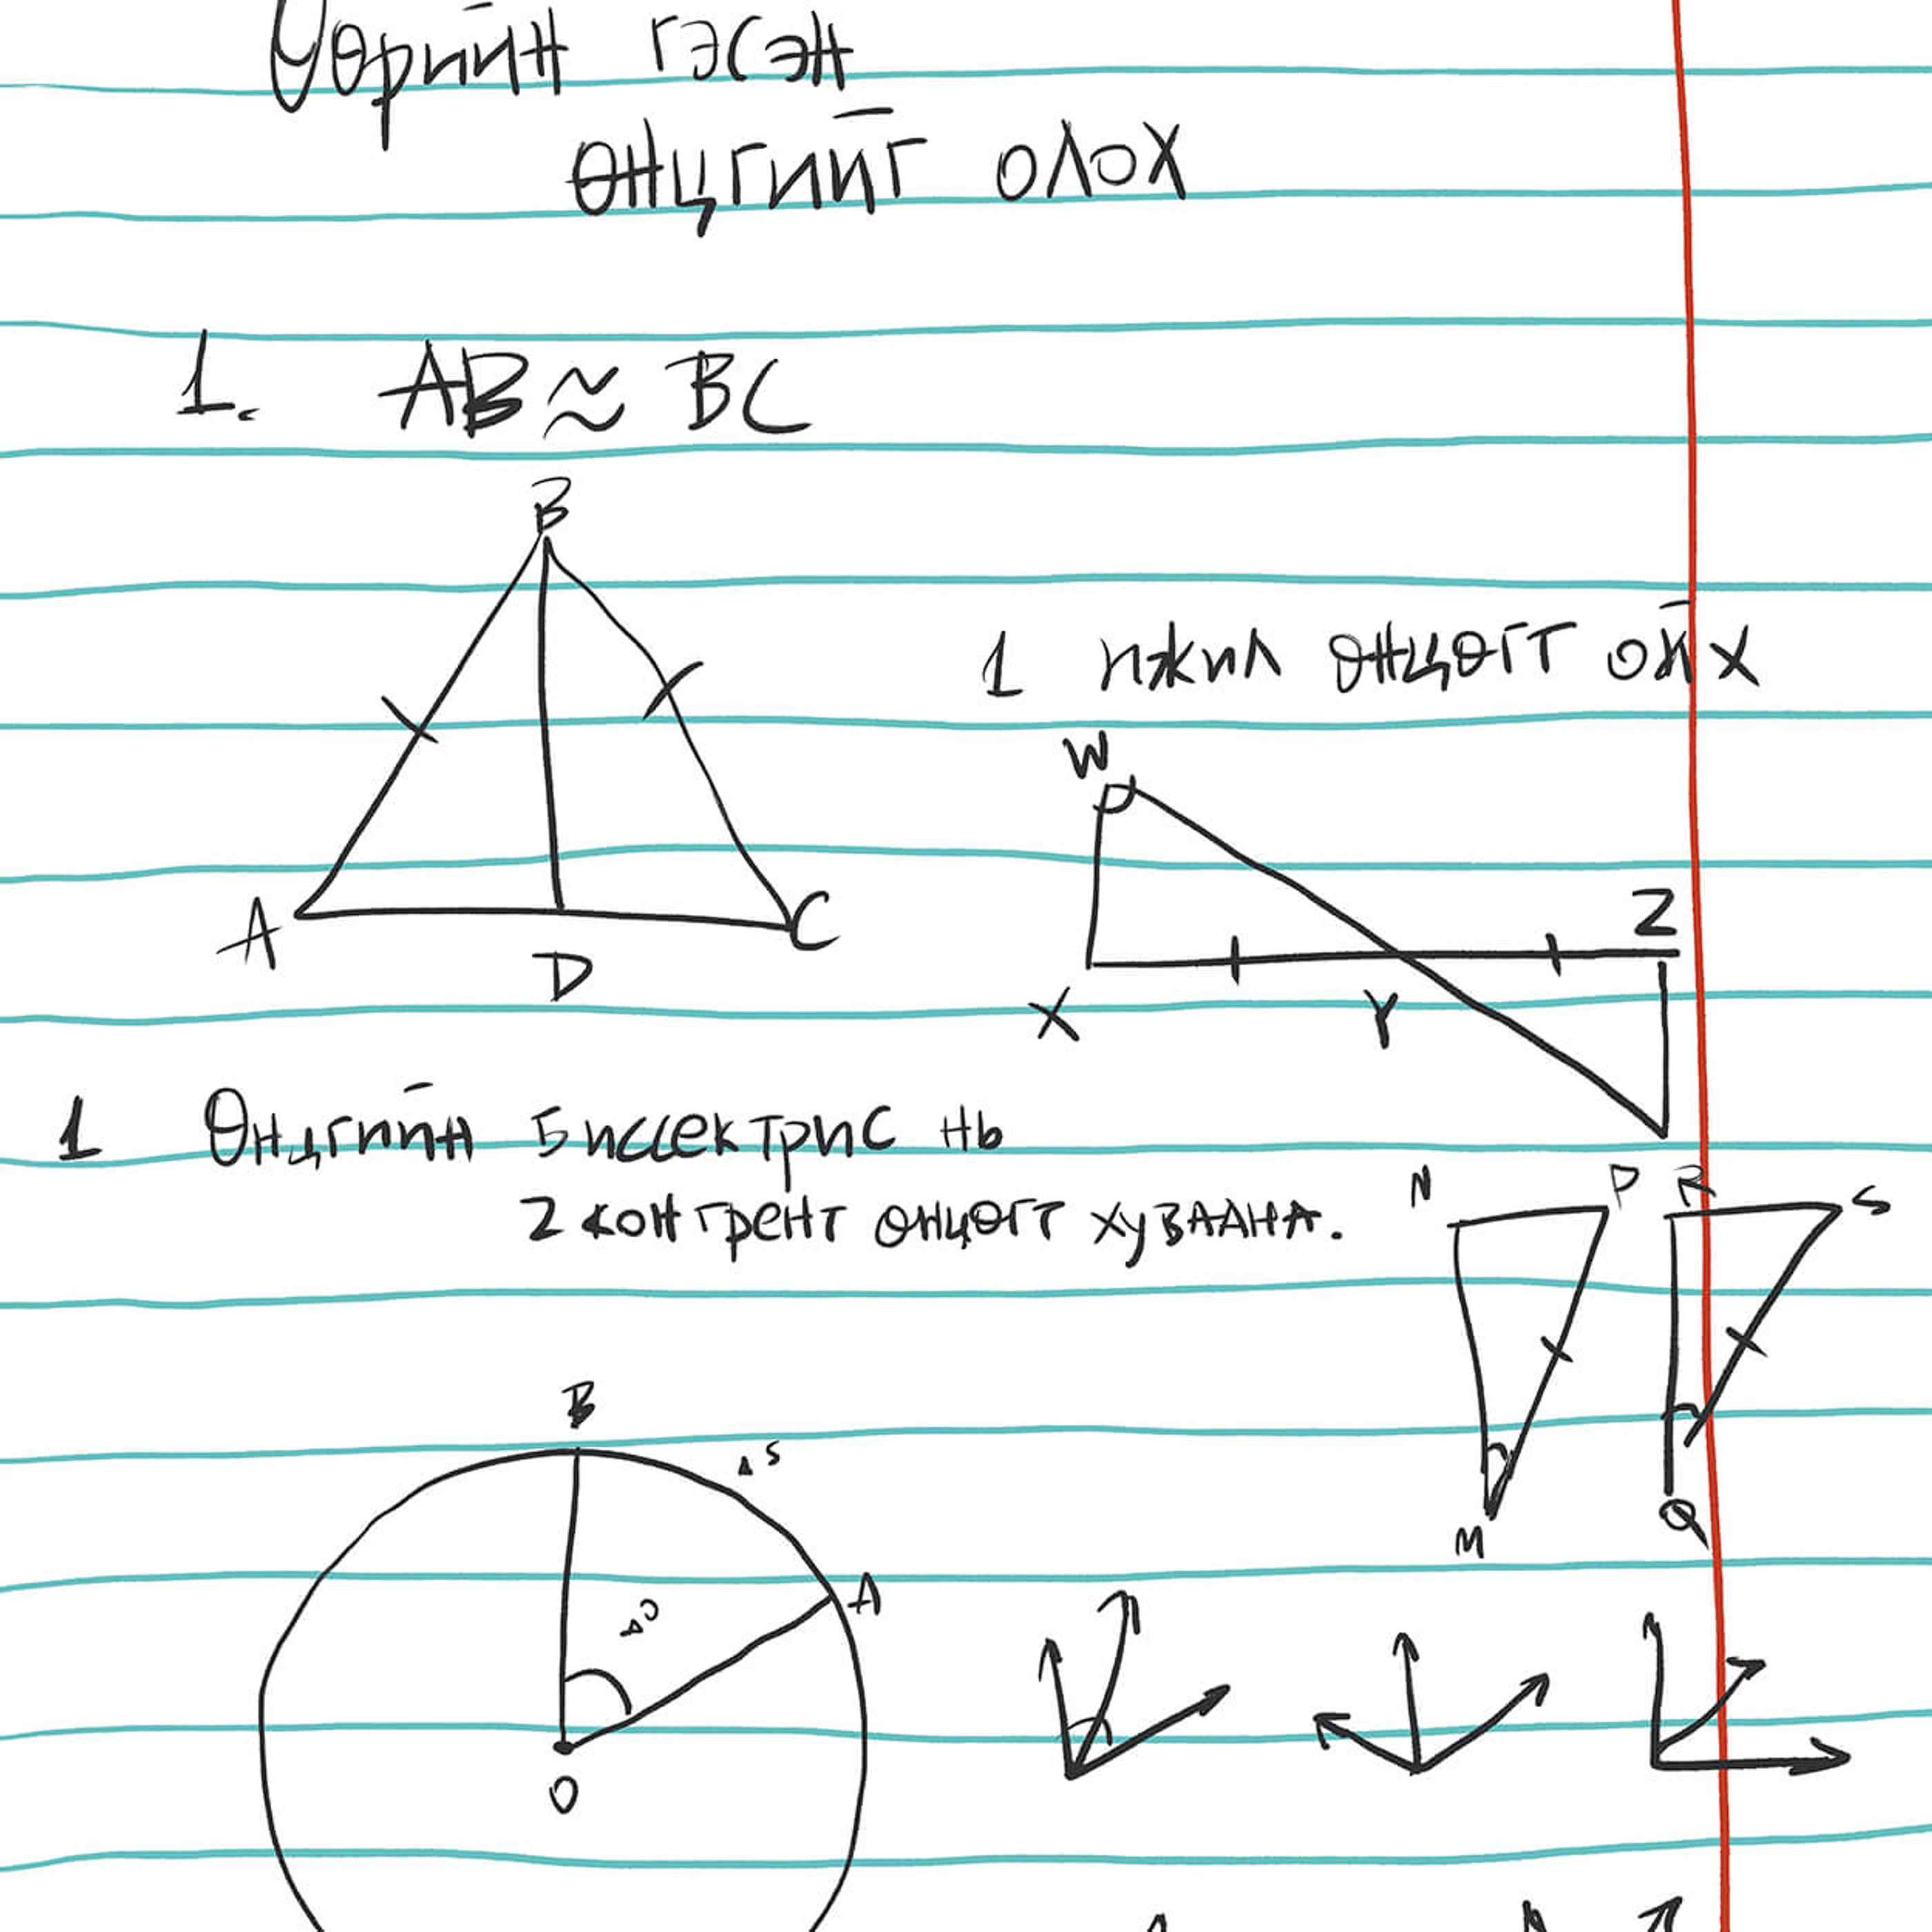 Өөрийн гэсэн
өнцгийг олох
1. AB ≈ BC
B
1 ижил өнцөгт ойх
W
Z
A
D
C
X
Y
1 Өнцгийн биссектрис нь
2 конгрент өнцөгт хуваана.
N P R S
B
Δs
M
Q
A
O